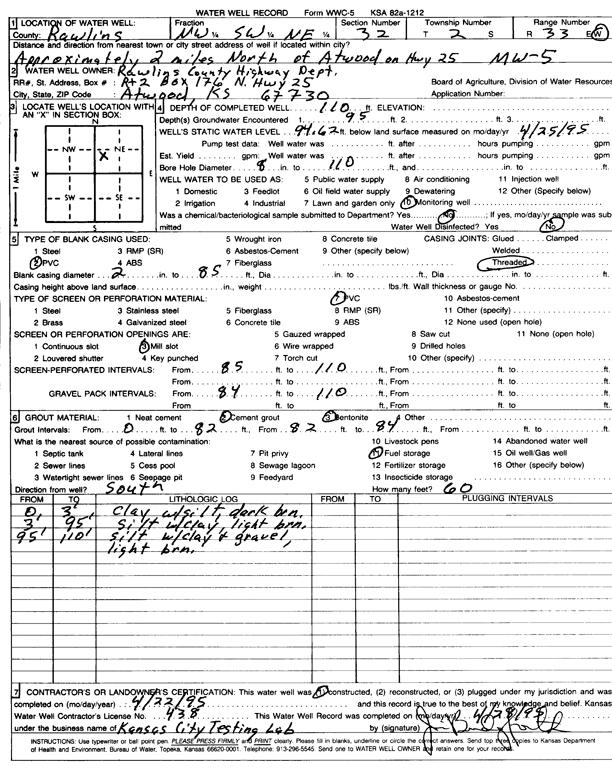 WATER WELL RECORD Form WWC-5 KSA 82a-1212
1 LOCATION OF WATER WELL: Fraction Section Number Township Number Range Number
County: Rawlins NW ¼ SW ¼ NE ¼ 32 T 2 S R 33 E/W
Distance and direction from nearest town or city street address of well if located within city?
Approximately 2 miles North of Atwood on Hwy 25 MW-5
2 WATER WELL OWNER: Rawlins County Highway Dept.
RR#, St. Address, Box # : Rt 2 Box 176 N. Hwy 25 Board of Agriculture, Division of Water Resources
City, State, ZIP Code : Atwood, KS 67730 Application Number:
3 LOCATE WELL'S LOCATION WITH AN "X" IN SECTION BOX:
N
NW NE
X
W E
SW SE
S
1 Mile
4 DEPTH OF COMPLETED WELL 110 ft. ELEVATION:
Depth(s) Groundwater Encountered 1 95 ft. 2 ft. 3 ft.
WELL'S STATIC WATER LEVEL 94.62 ft. below land surface measured on mo/day/yr 4/25/95
Pump test data: Well water was ft. after hours pumping gpm
Est. Yield gpm: Well water was ft. after hours pumping gpm
Bore Hole Diameter 8 in. to 110 ft., and in. to ft.
WELL WATER TO BE USED AS: 5 Public water supply 8 Air conditioning 11 Injection well
1 Domestic 3 Feedlot 6 Oil field water supply 9 Dewatering 12 Other (Specify below)
2 Irrigation 4 Industrial 7 Lawn and garden only 10 Monitoring well
Was a chemical/bacteriological sample submitted to Department? Yes No ; If yes, mo/day/yr sample was submitted
Water Well Disinfected? Yes No
5 TYPE OF BLANK CASING USED: 5 Wrought iron 8 Concrete tile CASING JOINTS: Glued Clamped
1 Steel 3 RMP (SR) 6 Asbestos-Cement 9 Other (specify below) Welded
2 PVC 4 ABS 7 Fiberglass Threaded
Blank casing diameter 2 in. to 85 ft., Dia in. to ft., Dia in. to ft.
Casing height above land surface in., weight lbs./ft. Wall thickness or gauge No.
TYPE OF SCREEN OR PERFORATION MATERIAL: 7 PVC 10 Asbestos-cement
1 Steel 3 Stainless steel 5 Fiberglass 8 RMP (SR) 11 Other (specify)
2 Brass 4 Galvanized steel 6 Concrete tile 9 ABS 12 None used (open hole)
SCREEN OR PERFORATION OPENINGS ARE: 5 Gauzed wrapped 8 Saw cut 11 None (open hole)
1 Continuous slot 3 Mill slot 6 Wire wrapped 9 Drilled holes
2 Louvered shutter 4 Key punched 7 Torch cut 10 Other (specify)
SCREEN-PERFORATED INTERVALS: From 85 ft. to 110 ft., From ft. to ft.
From ft. to ft., From ft. to ft.
GRAVEL PACK INTERVALS: From 84 ft. to 110 ft., From ft. to ft.
From ft. to ft., From ft. to ft.
6 GROUT MATERIAL: 1 Neat cement 2 Cement grout 3 Bentonite 4 Other
Grout Intervals: From 0 ft. to 82 ft., From 82 ft. to 84 ft., From ft. to ft.
What is the nearest source of possible contamination: 10 Livestock pens 14 Abandoned water well
1 Septic tank 4 Lateral lines 7 Pit privy 11 Fuel storage 15 Oil well/Gas well
2 Sewer lines 5 Cess pool 8 Sewage lagoon 12 Fertilizer storage 16 Other (specify below)
3 Watertight sewer lines 6 Seepage pit 9 Feedyard 13 Insecticide storage
Direction from well? South How many feet? 60
FROM TO LITHOLOGIC LOG FROM TO PLUGGING INTERVALS
0' 3' Clay w/silt, dark brn.
3' 95' Silt w/clay, light brn.
95' 110' Silt w/clay & gravel,
light brn.
7 CONTRACTOR'S OR LANDOWNER'S CERTIFICATION: This water well was (1) constructed, (2) reconstructed, or (3) plugged under my jurisdiction and was
completed on (mo/day/year) 4/22/95 and this record is true to the best of my knowledge and belief. Kansas
Water Well Contractor's License No. 438 This Water Well Record was completed on (mo/day/yr) 4/28/95
under the business name of Kansas City Testing Lab by (signature)
INSTRUCTIONS: Use typewriter or ball point pen. PLEASE PRESS FIRMLY and PRINT clearly. Please fill in blanks, underline or circle the correct answers. Send top three copies to Kansas Department
of Health and Environment, Bureau of Water, Topeka, Kansas 66620-0001. Telephone: 913-296-5545. Send one to WATER WELL OWNER and retain one for your records.